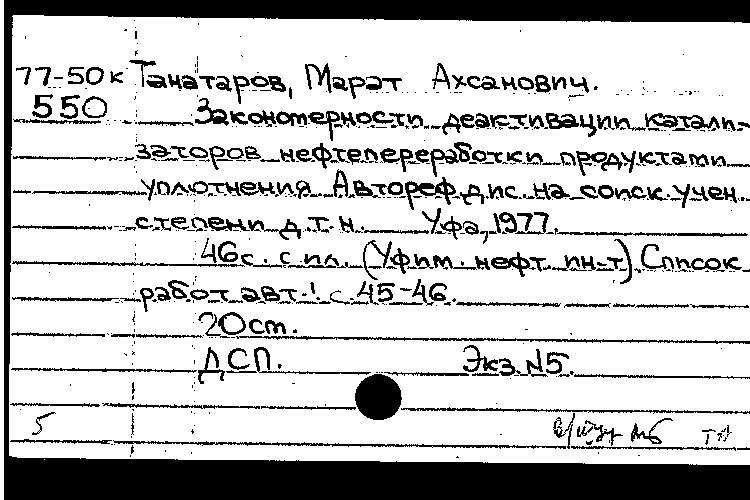 77-50к Танатаров, Марат Ахсанович.
550 Закономерности деактивации катали-
заторов нефтепереработки продуктами
уплотнения Автореф.дис.на соиск.учен.
степени д.т.н. Уфа, 1977.
46с. с ил. (Уфим. нефт. ин-т). Список
работ авт.: с. 45-46.
20см.
ДСП. Экз.N5.
5